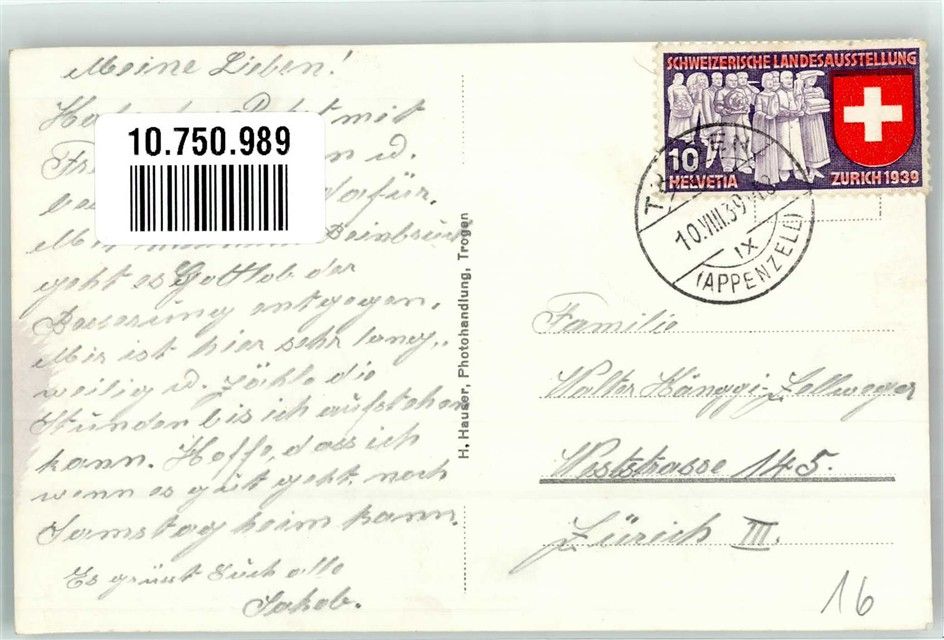 Meine Lieben!
mit
u.
dafür.
Beinbruch
geht es Gottlob der
Besserung entgegen.
Mir ist hier sehr lang-
weilig u. zähle die
Stunden bis ich aufstehen
kann. Hoffe, dass ich
wenn es gut geht noch
Samstag heim kann.
Es grüsst Euch alle
Jakob.
10.750.989
H. Hauser, Photohandlung, Trogen
SCHWEIZERISCHE LANDESAUSSTELLUNG
10
HELVETIA
ZURICH 1939
10.VIII.39
IX
(APPENZELL)
Familie
Walter Hänggi-Zellweger
Weststrasse 145.
Zürich III.
16